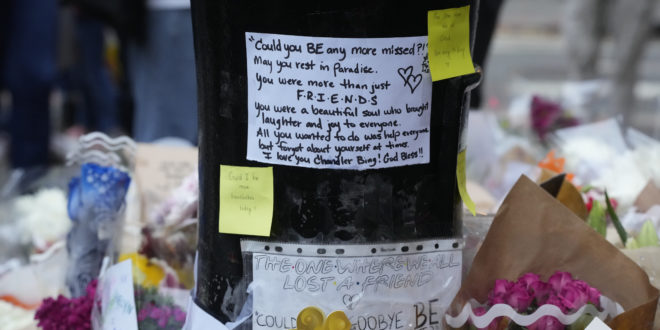 "Could you BE any more missed?!"
May you rest in Paradise.
You were more than just
F•R•I•E•N•D•S
You were a beautiful soul who brought
laughter and joy to everyone.
All you wanted to do was help everyone
but forgot about yourself at times.
I love you Chandler Bing! God Bless!!
Could I be
more
today?
THE•ONE•WHERE•WE•ALL
LOST A FRIEND
"COULD
GOODBYE BE